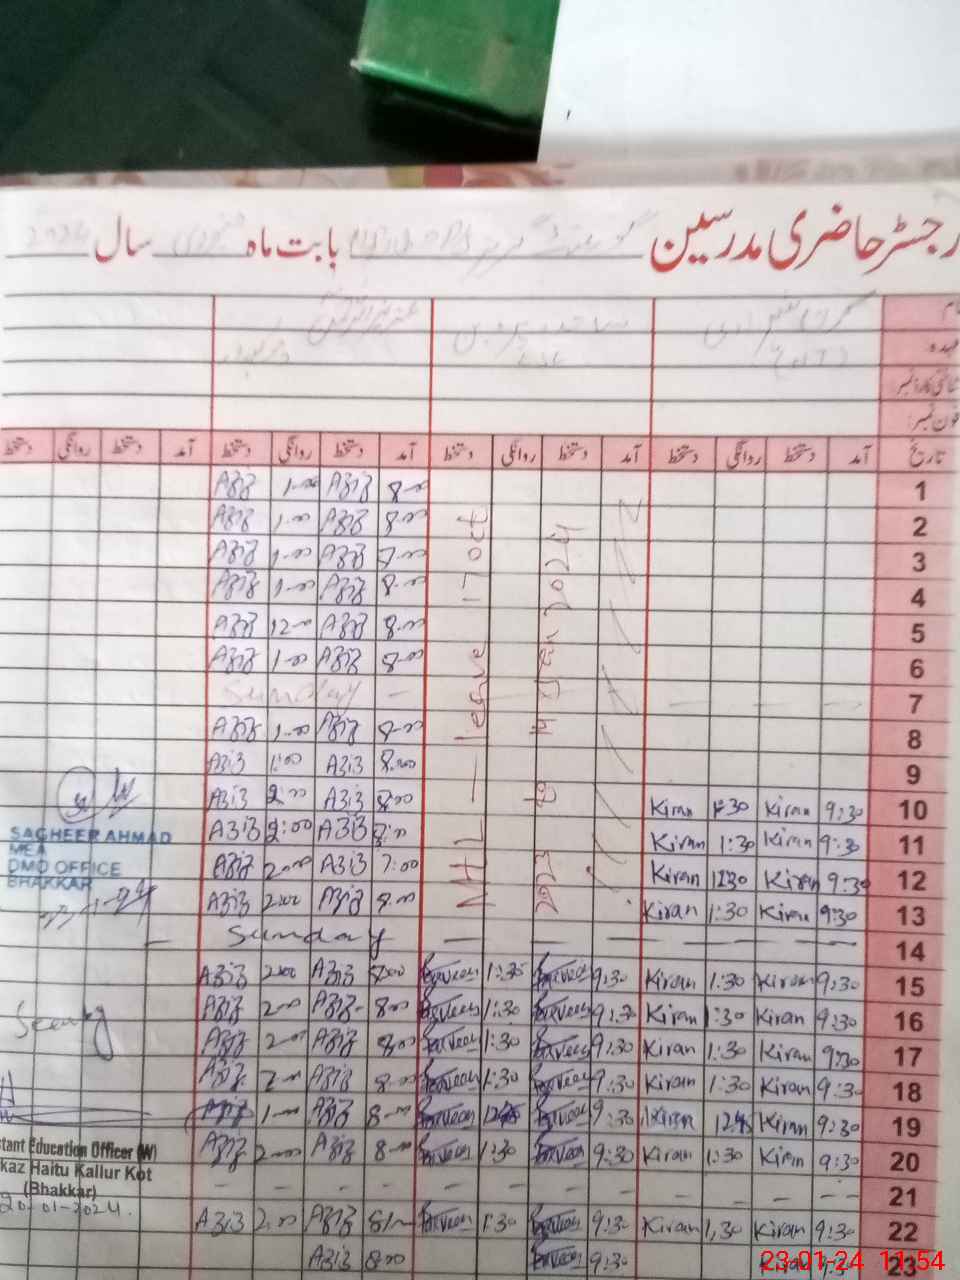 رجسٹر حاضری مدرسین بابت ماہ سال 2024
نام
عہدہ
شناختی کارڈ نمبر
فون نمبر
تاریخ آمد دستخط روانگی دستخط آمد دستخط روانگی دستخط آمد دستخط روانگی دستخط آمد دستخط روانگی دستخط
Aziz 1-00 Aziz 8-00 1
Aziz 1-00 Aziz 8-00 2
Aziz 1-00 Aziz 3
Aziz 1-00 Aziz 8-00 4
Aziz 12-00 Aziz 8-00 5
Aziz 1-00 Aziz 8-00 6
Sunday - 7
Aziz 1-00 Aziz 8-00 8
Aziz 1:00 Aziz 8:00 9
Aziz 2:00 Aziz 8:00 Kiran 1:30 Kiran 9:30 10
Aziz 2:00 Aziz Kiran 1:30 Kiran 9:30 11
Aziz 2:00 Aziz 7:00 Kiran 12:30 Kiran 9:30 12
Aziz 2:00 Aziz 8:00 Kiran 1:30 Kiran 9:30 13
- Sunday - - - - - - - 14
Aziz 2:00 Aziz 8:00 Parveen 1:30 Parveen 9:30 Kiran 1:30 Kiran 9:30 15
Aziz 2-00 Aziz 8:00 Parveen 1:30 Parveen 9:30 Kiran 1:30 Kiran 9:30 16
Aziz 2-00 Aziz 8:00 Parveen 1:30 Parveen 9:30 Kiran 1:30 Kiran 9:30 17
Aziz 2-00 Aziz 8:00 Parveen 1:30 Parveen 9:30 Kiran 1:30 Kiran 9:30 18
Aziz 1-00 Aziz 8-00 Parveen Parveen 9:30 Kiran Kiran 9:30 19
Aziz 2-00 Aziz 8-00 Parveen 1:30 Parveen 9:30 Kiran 1:30 Kiran 9:30 20
- - - - - - - - - - - 21
Aziz 2:00 Aziz Parveen 1:30 Parveen 9:30 Kiran 1:30 Kiran 9:30 22
Aziz 8:00 Parveen 9:30 Kiran 9:30 23
leave 17 oct
2023 to 14 Jan 2024
SAGHEER AHMAD
MEA
DMO OFFICE
BHAKKAR
23-1-24
stant Education Officer (W)
kaz Haitu Kallur Kot
(Bhakkar)
20-01-2024.
23-01-24 11:54